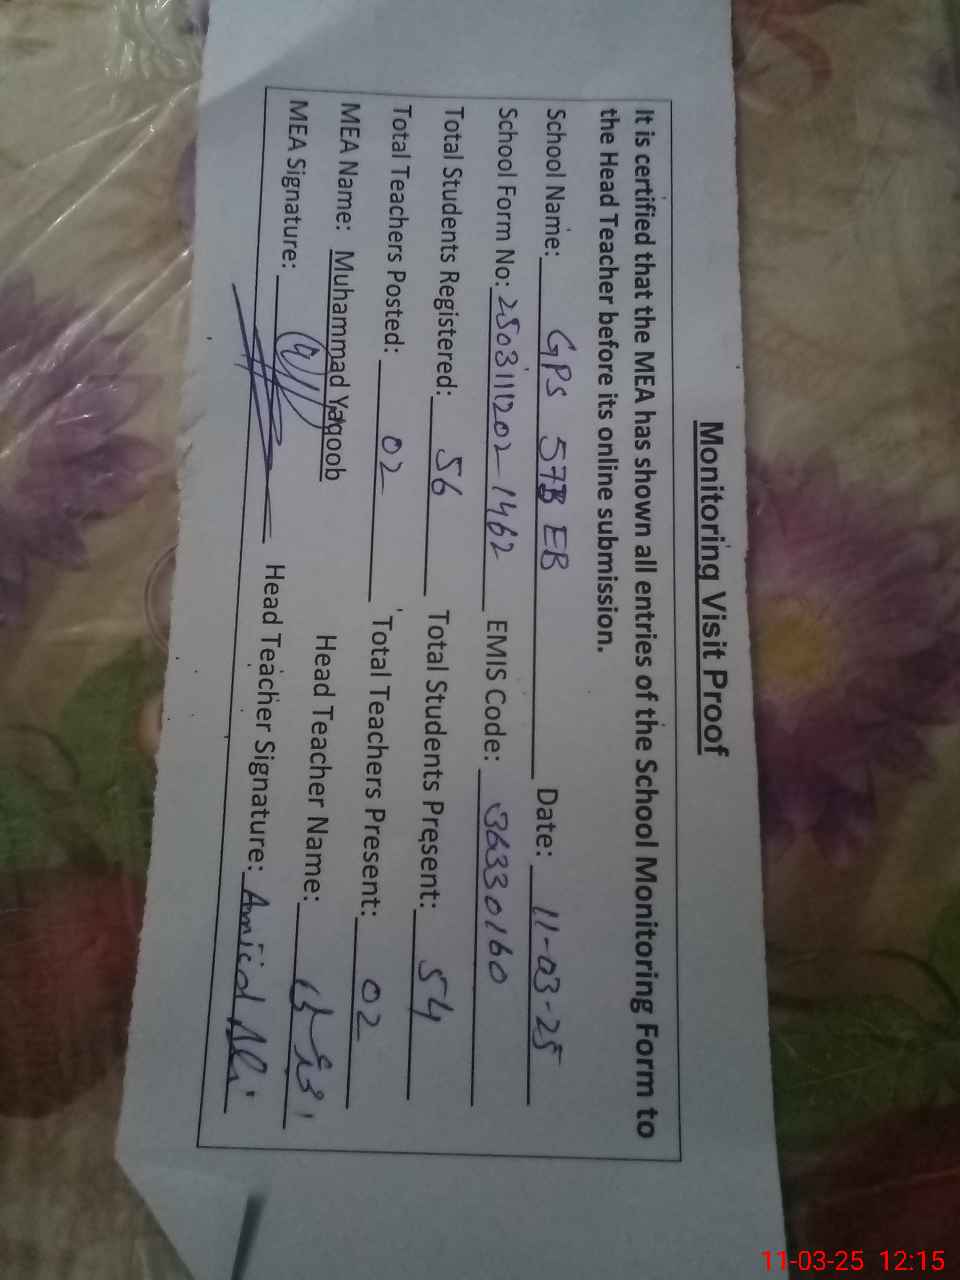 Monitoring Visit Proof
It is certified that the MEA has shown all entries of the School Monitoring Form to
the Head Teacher before its online submission.
School Name: GPS 57B EB Date: 11-03-25
School Form No: 2503111202-1462 EMIS Code: 36330160
Total Students Registered: 56 Total Students Present: 54
Total Teachers Posted: 02 Total Teachers Present: 02
MEA Name: Muhammad Yaqoob Head Teacher Name:
MEA Signature: Head Teacher Signature: Ali
11-03-25 12:15